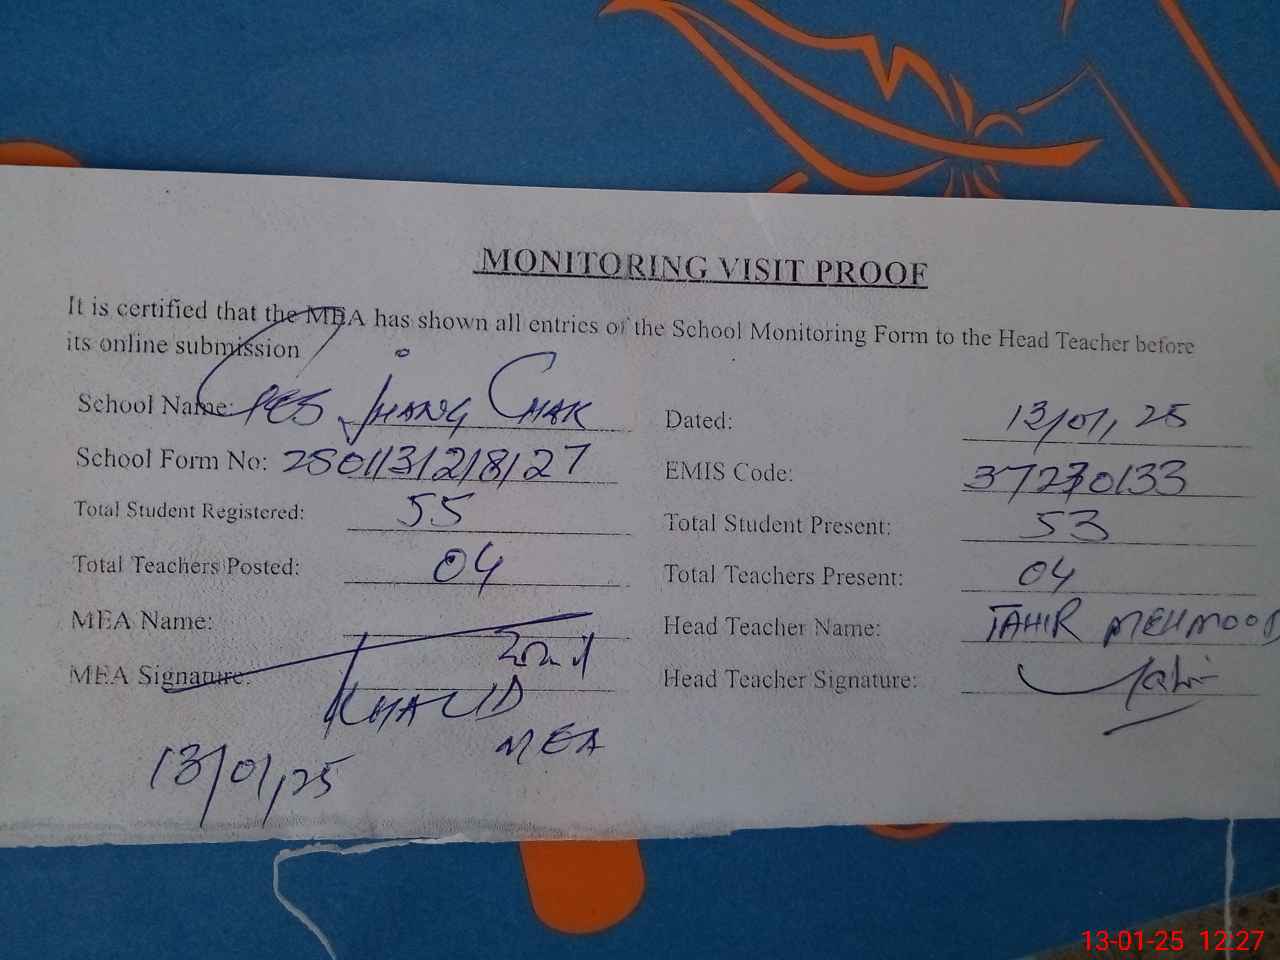 MONITORING VISIT PROOF
It is certified that the MEA has shown all entries of the School Monitoring Form to the Head Teacher before
its online submission
School Name: GES JHANG CHAK Dated: 13/01, 25
School Form No: 2501131218127 EMIS Code: 37230133
Total Student Registered: 55 Total Student Present: 53
Total Teachers Posted: 04 Total Teachers Present: 04
MEA Name: Head Teacher Name: TAHIR MEHMOOD
MEA Signature: KHALID Head Teacher Signature: Tahir
MEA
13/01, 25
13-01-25 12:27